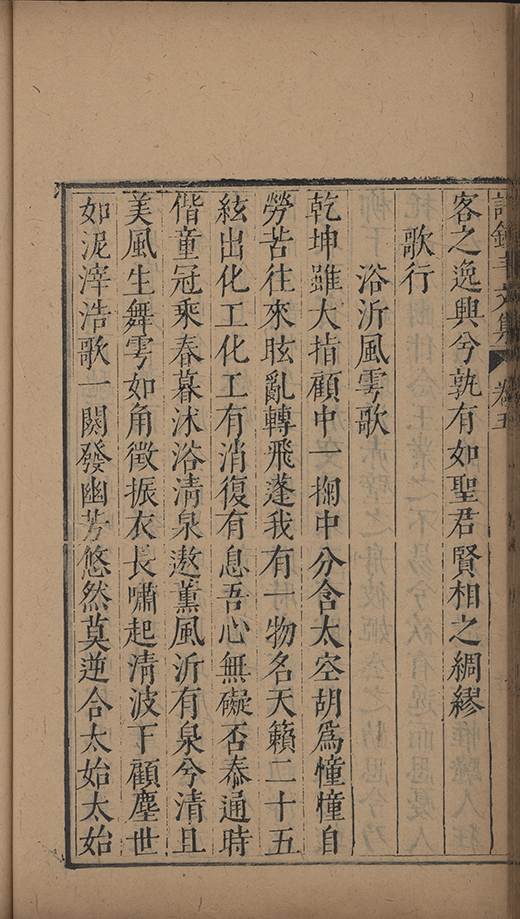 文集 卷五
客之逸興兮孰有如聖君賢相之綢繆
歌行
浴沂風雩歌
乾坤雖大指顧中一掬中分含太空胡為憧憧自
勞苦往來眩亂轉飛蓬我有一物名天籟二十五
絃出化工化工有消復有息吾心無礙否泰通時
偕童冠乘春暮沐浴清泉遨薰風沂有泉兮清且
美風生舞雩如角徵振衣長嘯起清波下顧塵世
如泥滓浩歌一闋發幽芳悠然莫逆合太始太始